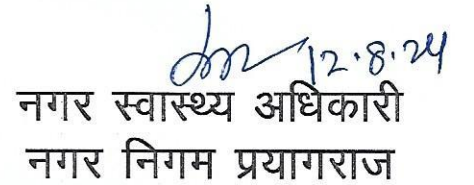 12.8.24
नगर स्वास्थ्य अधिकारी
नगर निगम प्रयागराज